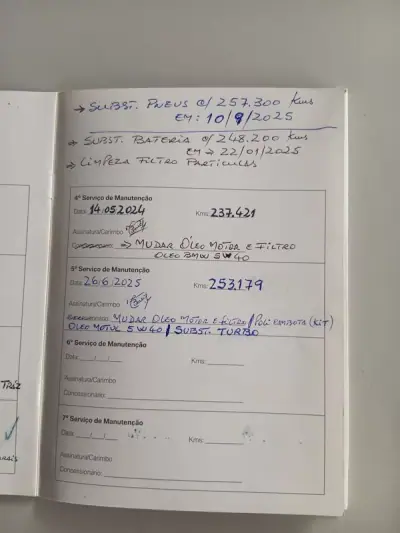 → SUBST. PNEUS C/ 257.300 Kms
EM: 10/9/2025
→ SUBST. BATERIA C/ 248.200 Kms
EM → 22/01/2025
→ LIMPEZA FILTRO PARTICULAS
4º Serviço de Manutenção
Data: 14.05.2024 Kms: 237.421
Assinatura/Carimbo
→ MUDAR ÓLEO MOTOR E FILTRO
OLEO BMW 5W40
5º Serviço de Manutenção
Data: 26/6/2025 Kms: 253.179
Assinatura/Carimbo
MUDAR ÓLEO MOTOR E FILTRO / POLI CAMBOTA (KIT)
OLEO MOTUL 5W40 / SUBST. TURBO
6º Serviço de Manutenção
Data: / / Kms:
Assinatura/Carimbo
Concessionário:
7º Serviço de Manutenção
Data: / / Kms:
Assinatura/Carimbo
Concessionário: